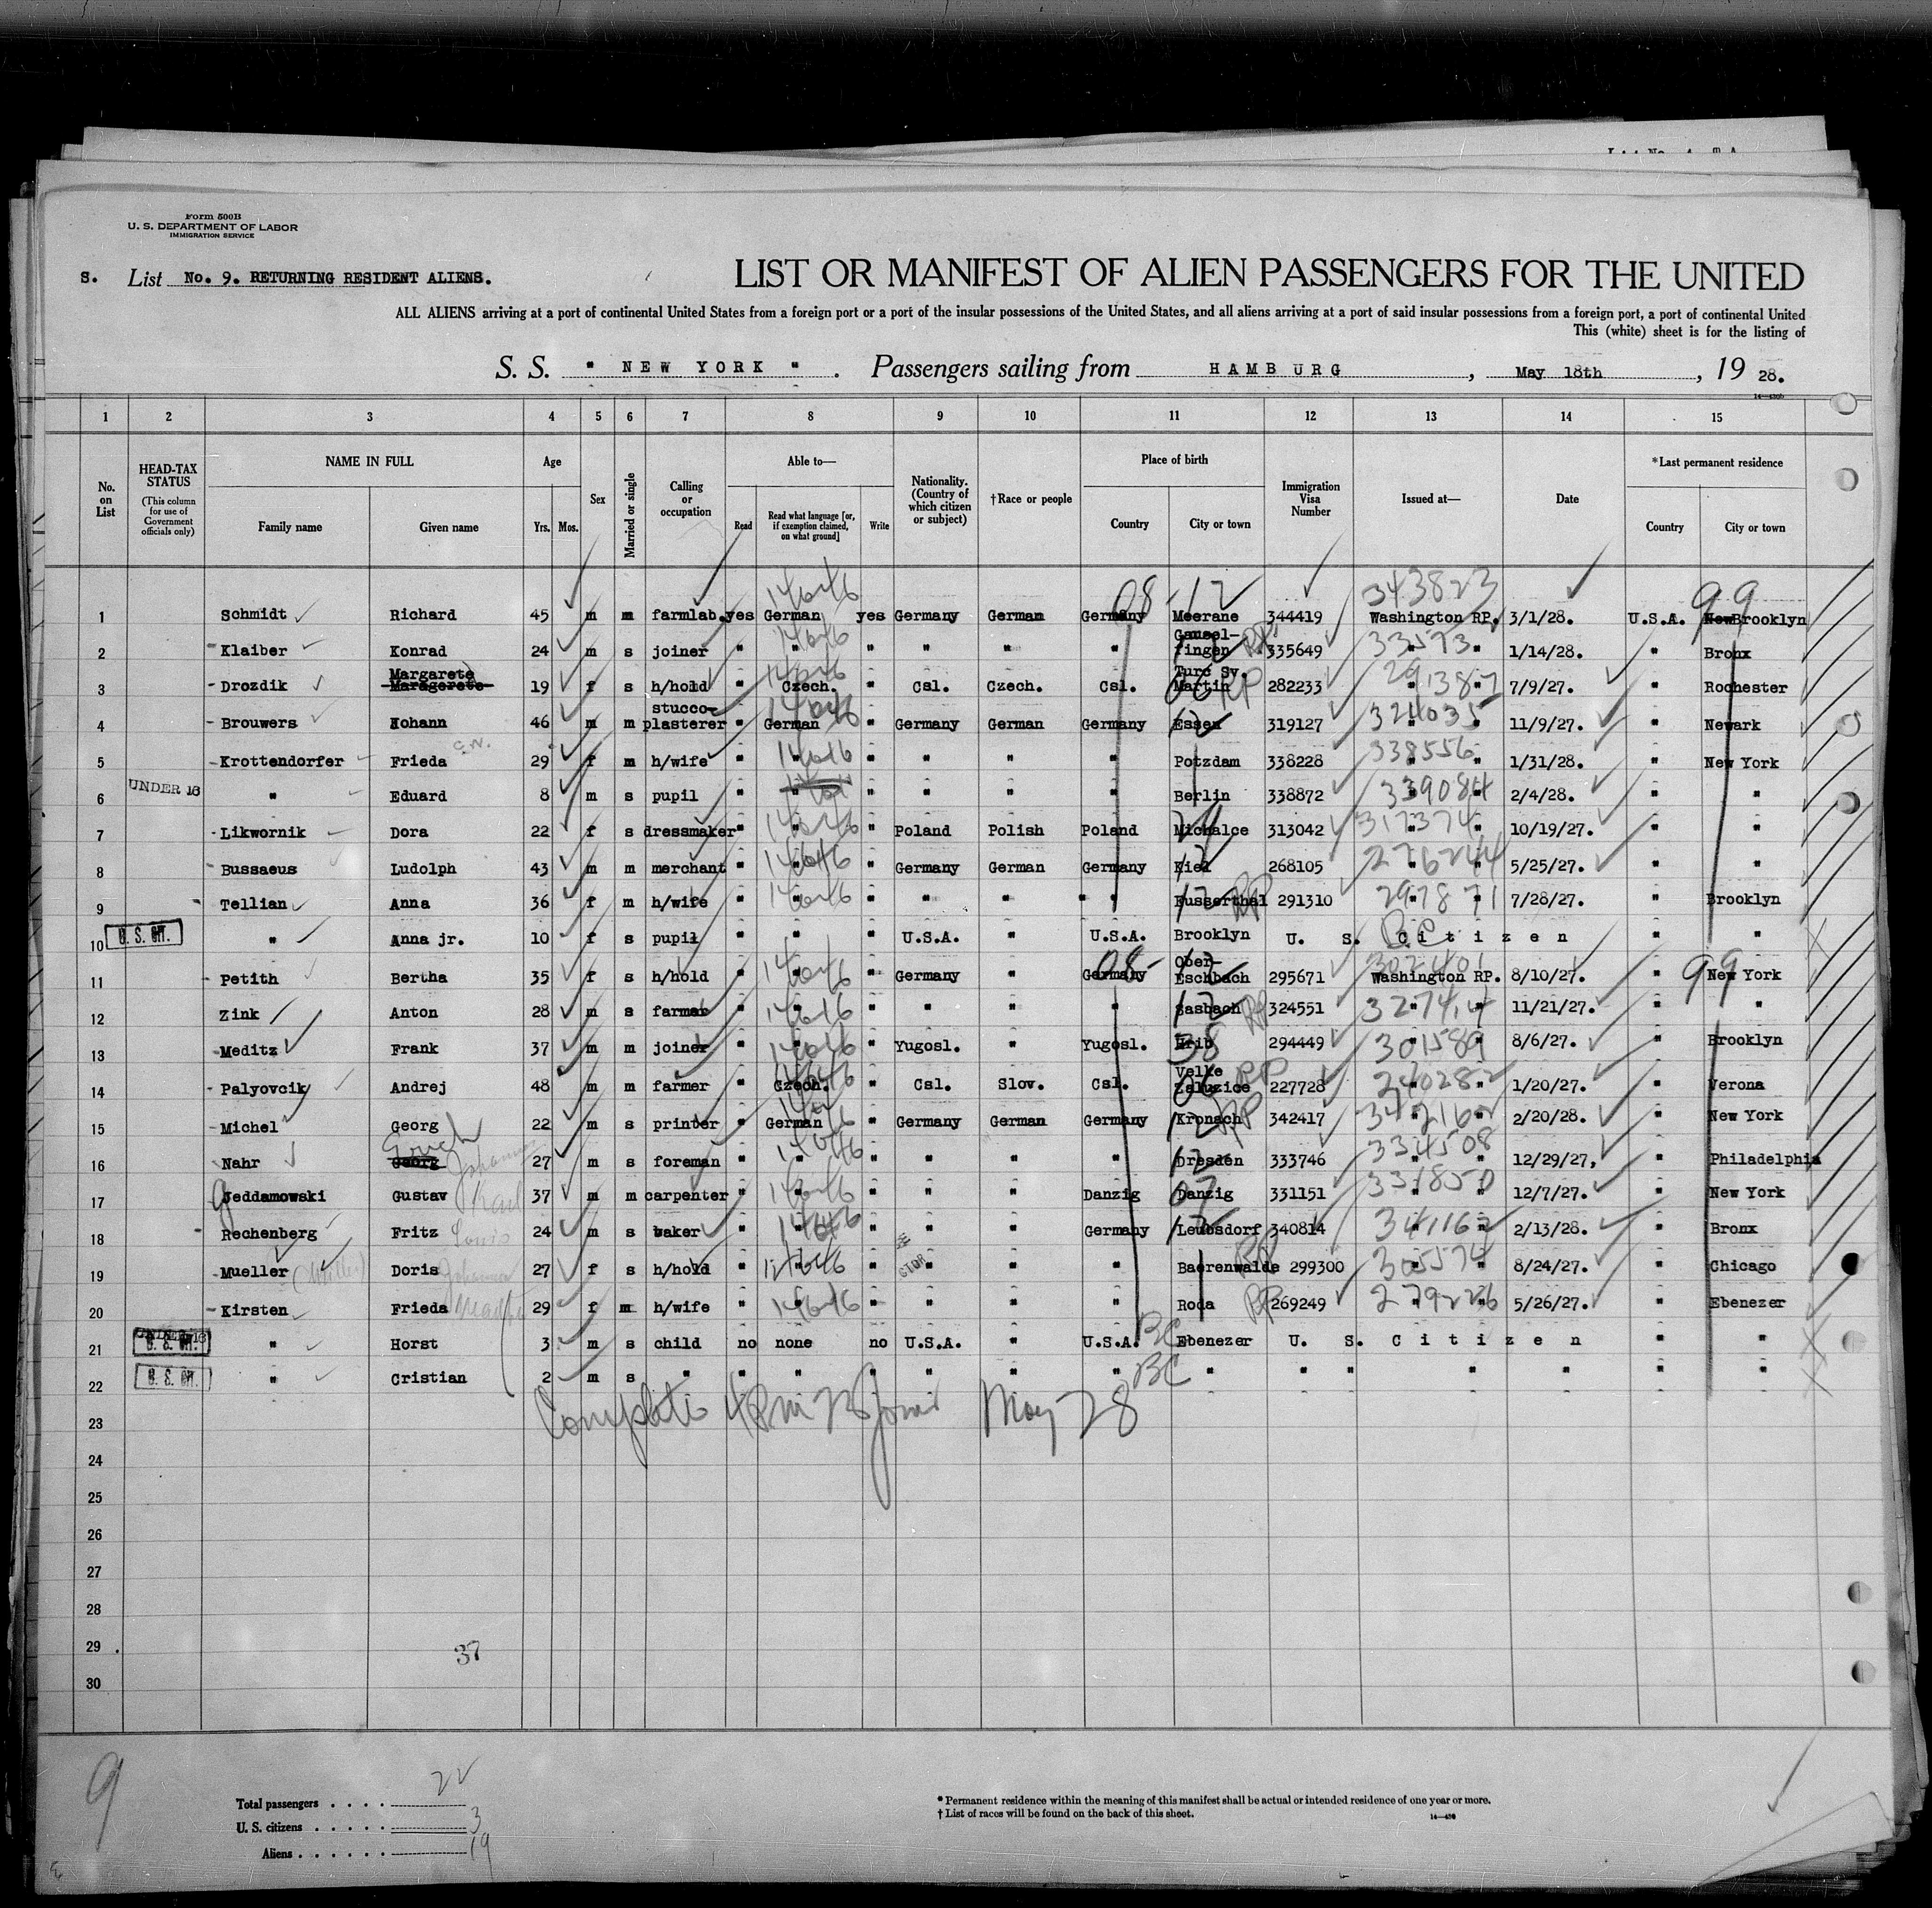 Form 500B
U. S. DEPARTMENT OF LABOR
IMMIGRATION SERVICE
S. List No. 9. RETURNING RESIDENT ALIENS.
LIST OR MANIFEST OF ALIEN PASSENGERS FOR THE UNITED
ALL ALIENS arriving at a port of continental United States from a foreign port or a port of the insular possessions of the United States, and all aliens arriving at a port of said insular possessions from a foreign port, a port of continental United
This (white) sheet is for the listing of
S. S. " NEW YORK " . Passengers sailing from HAMBURG , May 18th , 19 28.
14—430b
1 2 3 4 5 6 7 8 9 10 11 12 13 14 15
No. on List
HEAD-TAX STATUS (This column for use of Government officials only)
NAME IN FULL
Family name Given name
Age
Yrs. Mos.
Sex
Married or single
Calling or occupation
Able to—
Read Read what language [or, if exemption claimed, on what ground] Write
Nationality. (Country of which citizen or subject)
†Race or people
Place of birth
Country City or town
Immigration Visa Number
Issued at—
Date
*Last permanent residence
Country City or town
343823
1 Schmidt Richard 45 m m farmlab. yes German yes Germany German Germany Meerane 344419 Washington RP. 3/1/28. U.S.A. New Brooklyn
2 Klaiber Konrad 24 m s joiner " " " " " " Gausel-fingen 335649 " " 1/14/28. " Bronx
Margarete
3 Drozdik Maragerete 19 f s h/hold " Czech. " Csl. Czech. Csl. Turc Sv. Martin RP 282233 291387 " " 7/9/27. " Rochester
4 Brouwers Johann 46 m m stucco-plasterer " German " Germany German Germany Essen 319127 324035 " " 11/9/27. " Newark
5 Krottendorfer Frieda 29 f m h/wife " " " " " " Potzdam 338228 338556 " " 1/31/28. " New York
UNDER 16
6 " Eduard 8 m s pupil " " " " " " Berlin 338872 339084 " " 2/4/28. " "
7 Likwornik Dora 22 f s dressmaker " " " Poland Polish Poland Michalce 313042 317374 " " 10/19/27. " "
8 Bussaeus Ludolph 43 m m merchant " " " Germany German Germany Kiel 268105 276244 " " 5/25/27. " "
9 Tellian Anna 36 f m h/wife " " " " " " Fussgerthal RP 291310 297871 " " 7/28/27. " Brooklyn
10 U. S. CIT. " Anna jr. 10 f s pupil " " " U.S.A. " U.S.A. Brooklyn U. S. Citizen " "
302401
11 Petith Bertha 35 f s h/hold " " " Germany " Germany Ober-Eschbach 295671 Washington RP. 8/10/27. " New York
12 Zink Anton 28 m s farmer " " " " " " Sasbach RP 324551 327414 " " 11/21/27. " "
13 Meditz Frank 37 m m joiner " " " Yugosl. " Yugosl. Hrib 294449 301589 " " 8/6/27. " Brooklyn
14 Palyovcik Andrej 48 m m farmer " Czech. " Csl. Slov. Csl. Velke Zaluzice RP 227728 240282 " " 1/20/27. " Verona
15 Michel Georg 22 m s printer " German " Germany German Germany Kronach RP 342417 342162 " " 2/20/28. " New York
Erich
16 Nahr Georg 27 m s foreman " " " " " " Dresden 333746 334508 " " 12/29/27, " Philadelphia
17 Jeddamowski Gustav Karl 37 m m carpenter " " " " " Danzig Danzig 331151 331850 " " 12/7/27. " New York
18 Rechenberg Fritz Louis 24 m s baker " " " " " Germany Leubsdorf 340814 341162 " " 2/13/28. " Bronx
19 Mueller (Müller) Doris Johanna 27 f s h/hold " " " " " " Baerenwalde RP 299300 305574 " " 8/24/27. " Chicago
20 Kirsten Frieda 29 f m h/wife " " " " " " Roda RP 269249 279226 " " 5/26/27. " Ebenezer
UNDER 16
21 U. S. CIT. " Horst 3 m s child no none no U.S.A. " U.S.A. BC Ebenezer U. S. Citizen " "
22 U. S. CIT. " Cristian 2 m s " " " " " " " BC " " " " " " "
23 Complete May 28
24
25
26
27
28
29
30
37
9
Total passengers . . . . 22
U. S. citizens . . . . . 3
Aliens . . . . . . 19
* Permanent residence within the meaning of this manifest shall be actual or intended residence of one year or more.
† List of races will be found on the back of this sheet.
14—430